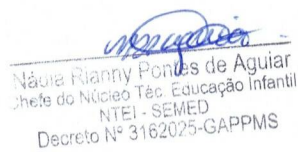 Nábia Rianny Pontes de Aguiar
Chefe do Núcleo Téc. Educação Infantil
NTEI - SEMED
Decreto Nº 3162025-GAPPMS